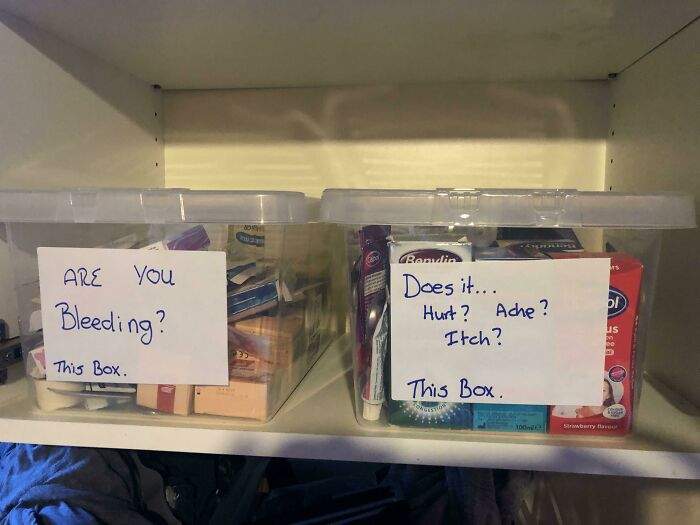 ARE YOU
Bleeding?
This Box.
Does it...
Hurt? Ache?
Itch?
This Box.
Benylin
100ml
Strawberry flavour